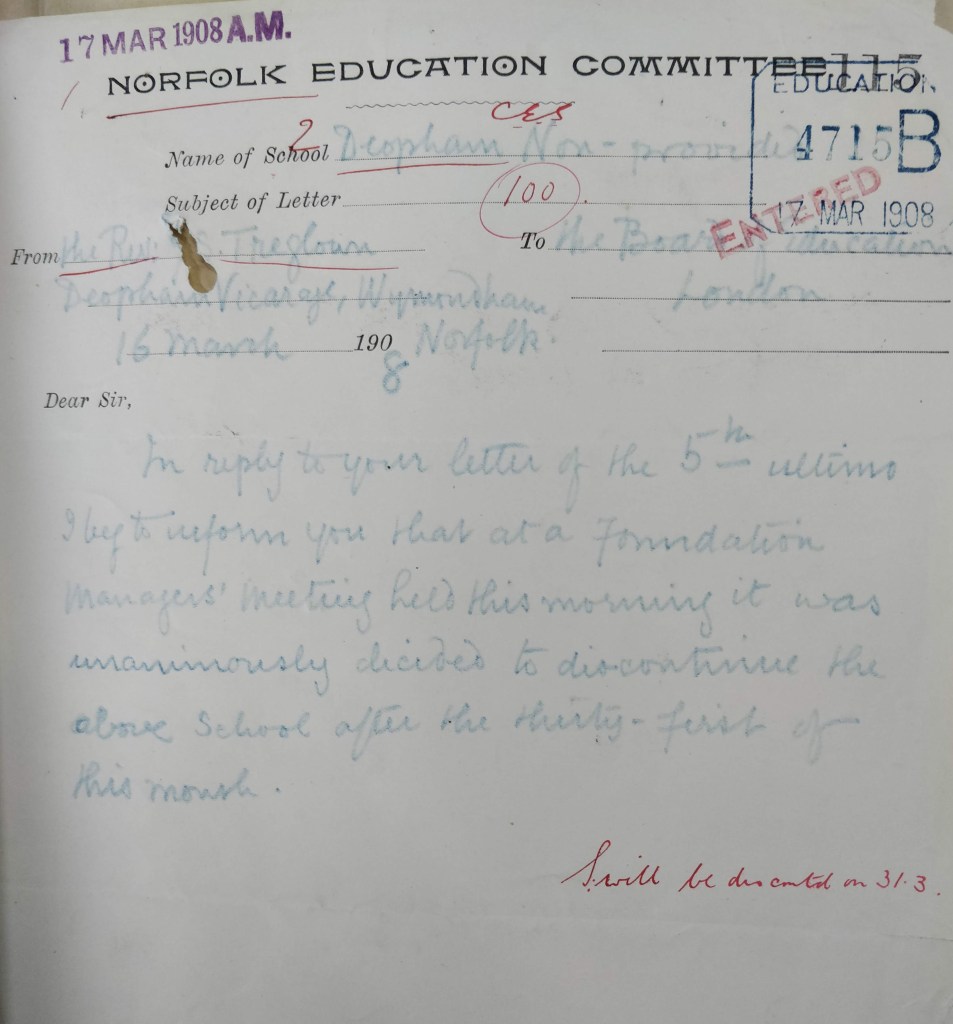 17 MAR 1908 A.M.
NORFOLK EDUCATION COMMITTEE
115
EDUCATION
4715 B
17 MAR 1908
ENTERED
2 C.E.S
Name of School Deopham Non-provided
Subject of Letter 100
From the Rev. S. Treglown To the Board of Education
Deopham Vicarage, Wymondham, London
16 March 1908 Norfolk.
Dear Sir,
In reply to your letter of the 5th ultimo
I beg to inform you that at a Foundation
Managers' Meeting held this morning it was
unanimously decided to discontinue the
above School after the thirty-first of
this month.
S. will be discontd on 31.3.